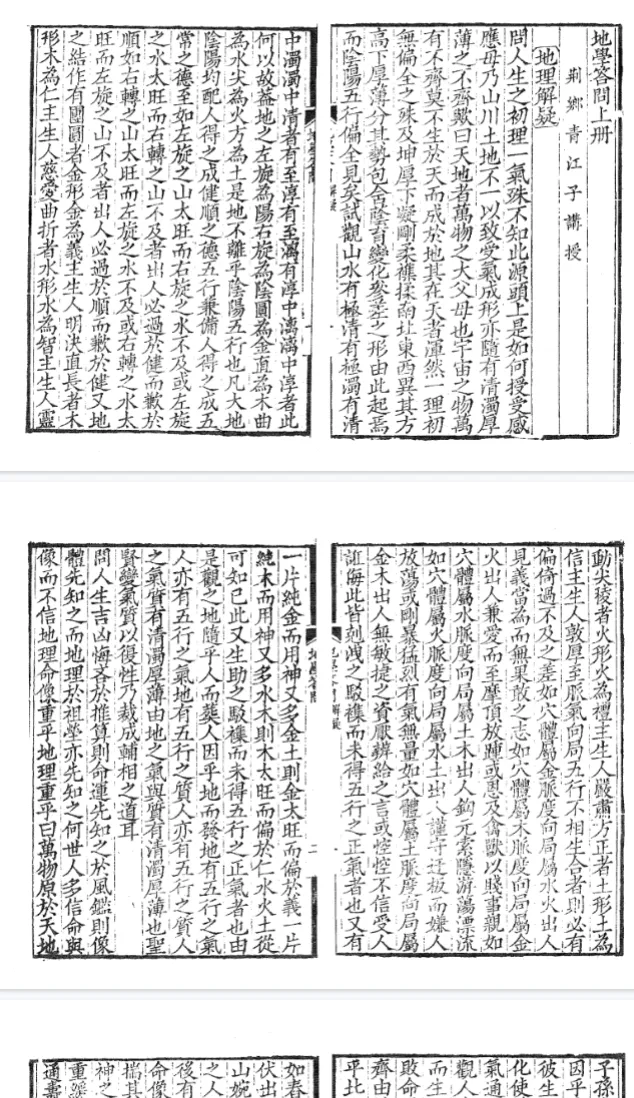 地學答問上册
荆鄉青江子講授
地理解疑
問人生之初理一氣殊不知此源頭上是如何授受感
應毋乃山川土地不一以致受氣成形亦隨有清濁厚
薄之不齊歟曰天地者萬物之大父母也宇宙之物萬
有不齊莫不生於天而成於地其在天者渾然一理初
無偏全之殊及坤厚下凝剛柔襍揉的址東西異其方
高下厚薄分其勢包含蔭育變化參差之形由此起焉
而陰陽五行偏全見矣試觀山水有極清有極濁有清
中濁濁中清者有至淳有至漓有淳中漓漓中淳者此
何以故葢地之左旋為陽右旋為陰圓為金直為木曲
為水尖為火方為土是地不離乎陰陽五行也凡大地
陰陽均配人得之成健順之德五行兼備人得之成五
常之德至如左旋之山太旺而右旋之水不及或左旋
之水太旺而右轉之山不及者出人必過於健而歉於
順如右轉之山太旺而左旋之水不及或右轉之水太
旺而左旋之山不及者出人必過於順而歉於健又地
之結作有團圓者金形金為義主生人明決直長者木
形木為仁主生人慈愛曲折者水形水為智主生人靈
動尖稜者火形火為禮主生人嚴肅方正者土形土為
信主生人敦厚至脈氣向局五行不相生合者則必有
偏倚過不及之差如穴體屬金脈度向局屬水火出人
見義當為而無果敢之志如穴體屬木脈度向局屬金
火出人兼愛而至摩頂放踵或恩及禽獸以賤事親如
穴體屬水脈度向局屬土木出人鉤元索隱游蕩漂流
如穴體屬火脈度向局屬水土出人謹守迂板而嫌人
放蕩或剛暴猛烈有氣無量如穴體屬土脈度向局屬
金木出人無敏捷之資厭辯給之言或悾悾不信受人
誑侮此皆剋洩之駁襍而未得五行之正氣者也又有
一片純金而用神又多金土則金太旺而偏於義一片
純木而用神又多水木則木太旺而偏於仁水火土從
可知已此又生助之駁襍而未得五行之正氣者也由
是觀之地隨乎人而葬人因乎地而發地有五行之氣
人亦有五行之氣地有五行之質人亦有五行之質人
之氣質有清濁厚薄由地之氣與質有清濁厚薄也聖
賢變氣質以復性乃裁成輔相之道耳
問人生吉凶悔吝於推算則命運先知之於風鑑則像
體先知之而地理於祖塋亦先知之何世人多信命與
像而不信地理命像重乎地理重乎曰萬物原於天地
子孫
因乎
彼生
化使
氣通
觀人
而生
敗命
齊由
平比
如春
伏出
山婉
之人
後有
命像
揣其
神之
重
通壽